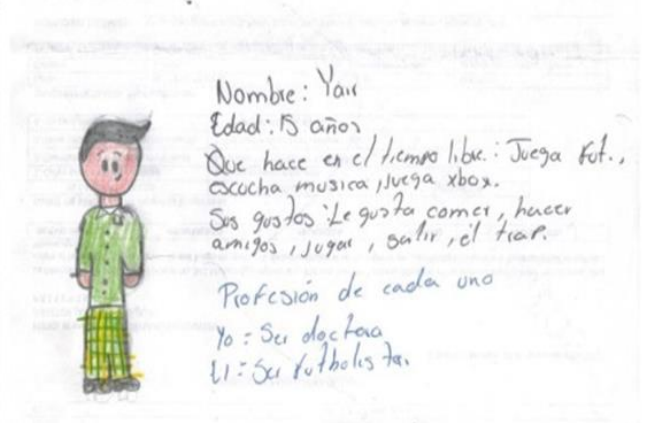 Nombre: Yair
Edad: 15 años
Que hace en el tiempo libre.: Juega fut.,
escucha musica, juega xbox.
Sus gustos: Le gusta comer, hacer
amigos, jugar, salir, el trap.
Profesión de cada uno
Yo: Ser doctora
El: Ser futbolista.